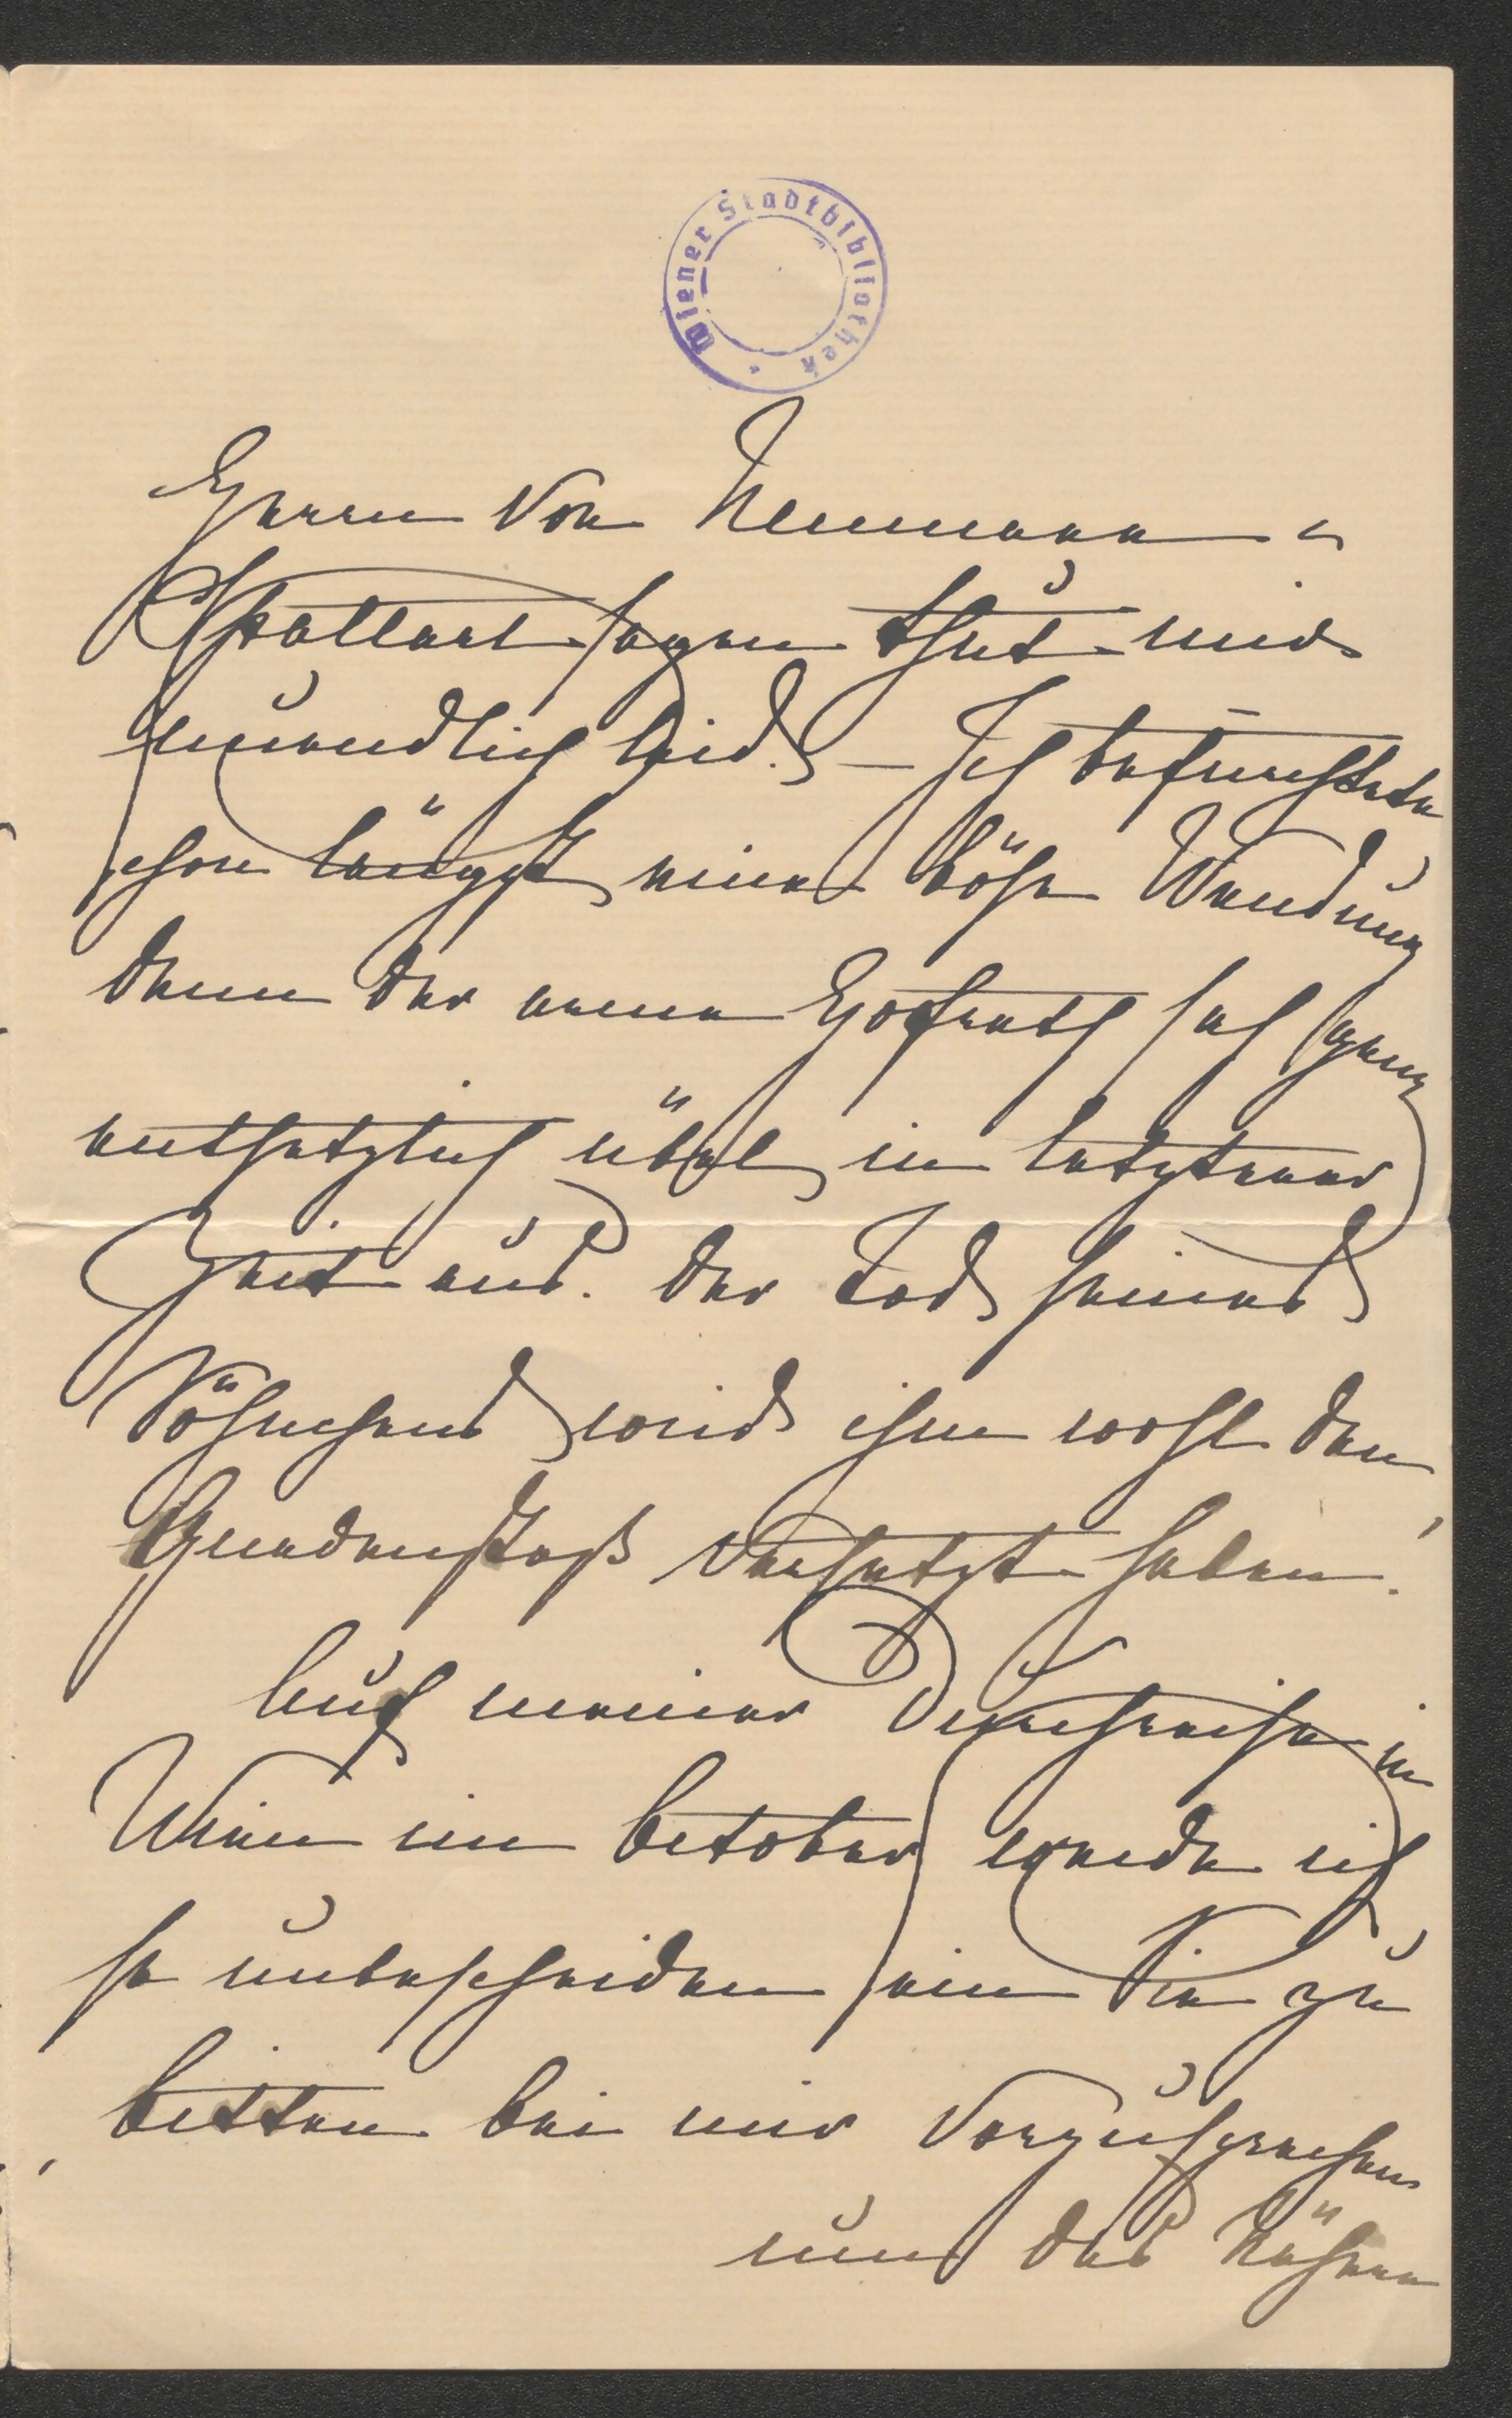 Wiener Stadtbibliothek
Herrn von Neumann-
Spallart sagen thut mir
unendlich leid. – Ich befürchtete
schon längst eine böse Wendung
denn der arme Hofrath sah ganz
entsetzlich übel in letzterer
Zeit aus. Der Tod seines
Söhnchens wird ihm wohl den
Gnadenstoß versetzt haben.
Auf meiner Durchreise in
Wien im October werde ich
so unbescheiden sein Sie zu
bitten bei mir vorzusprechen
um das Nähere